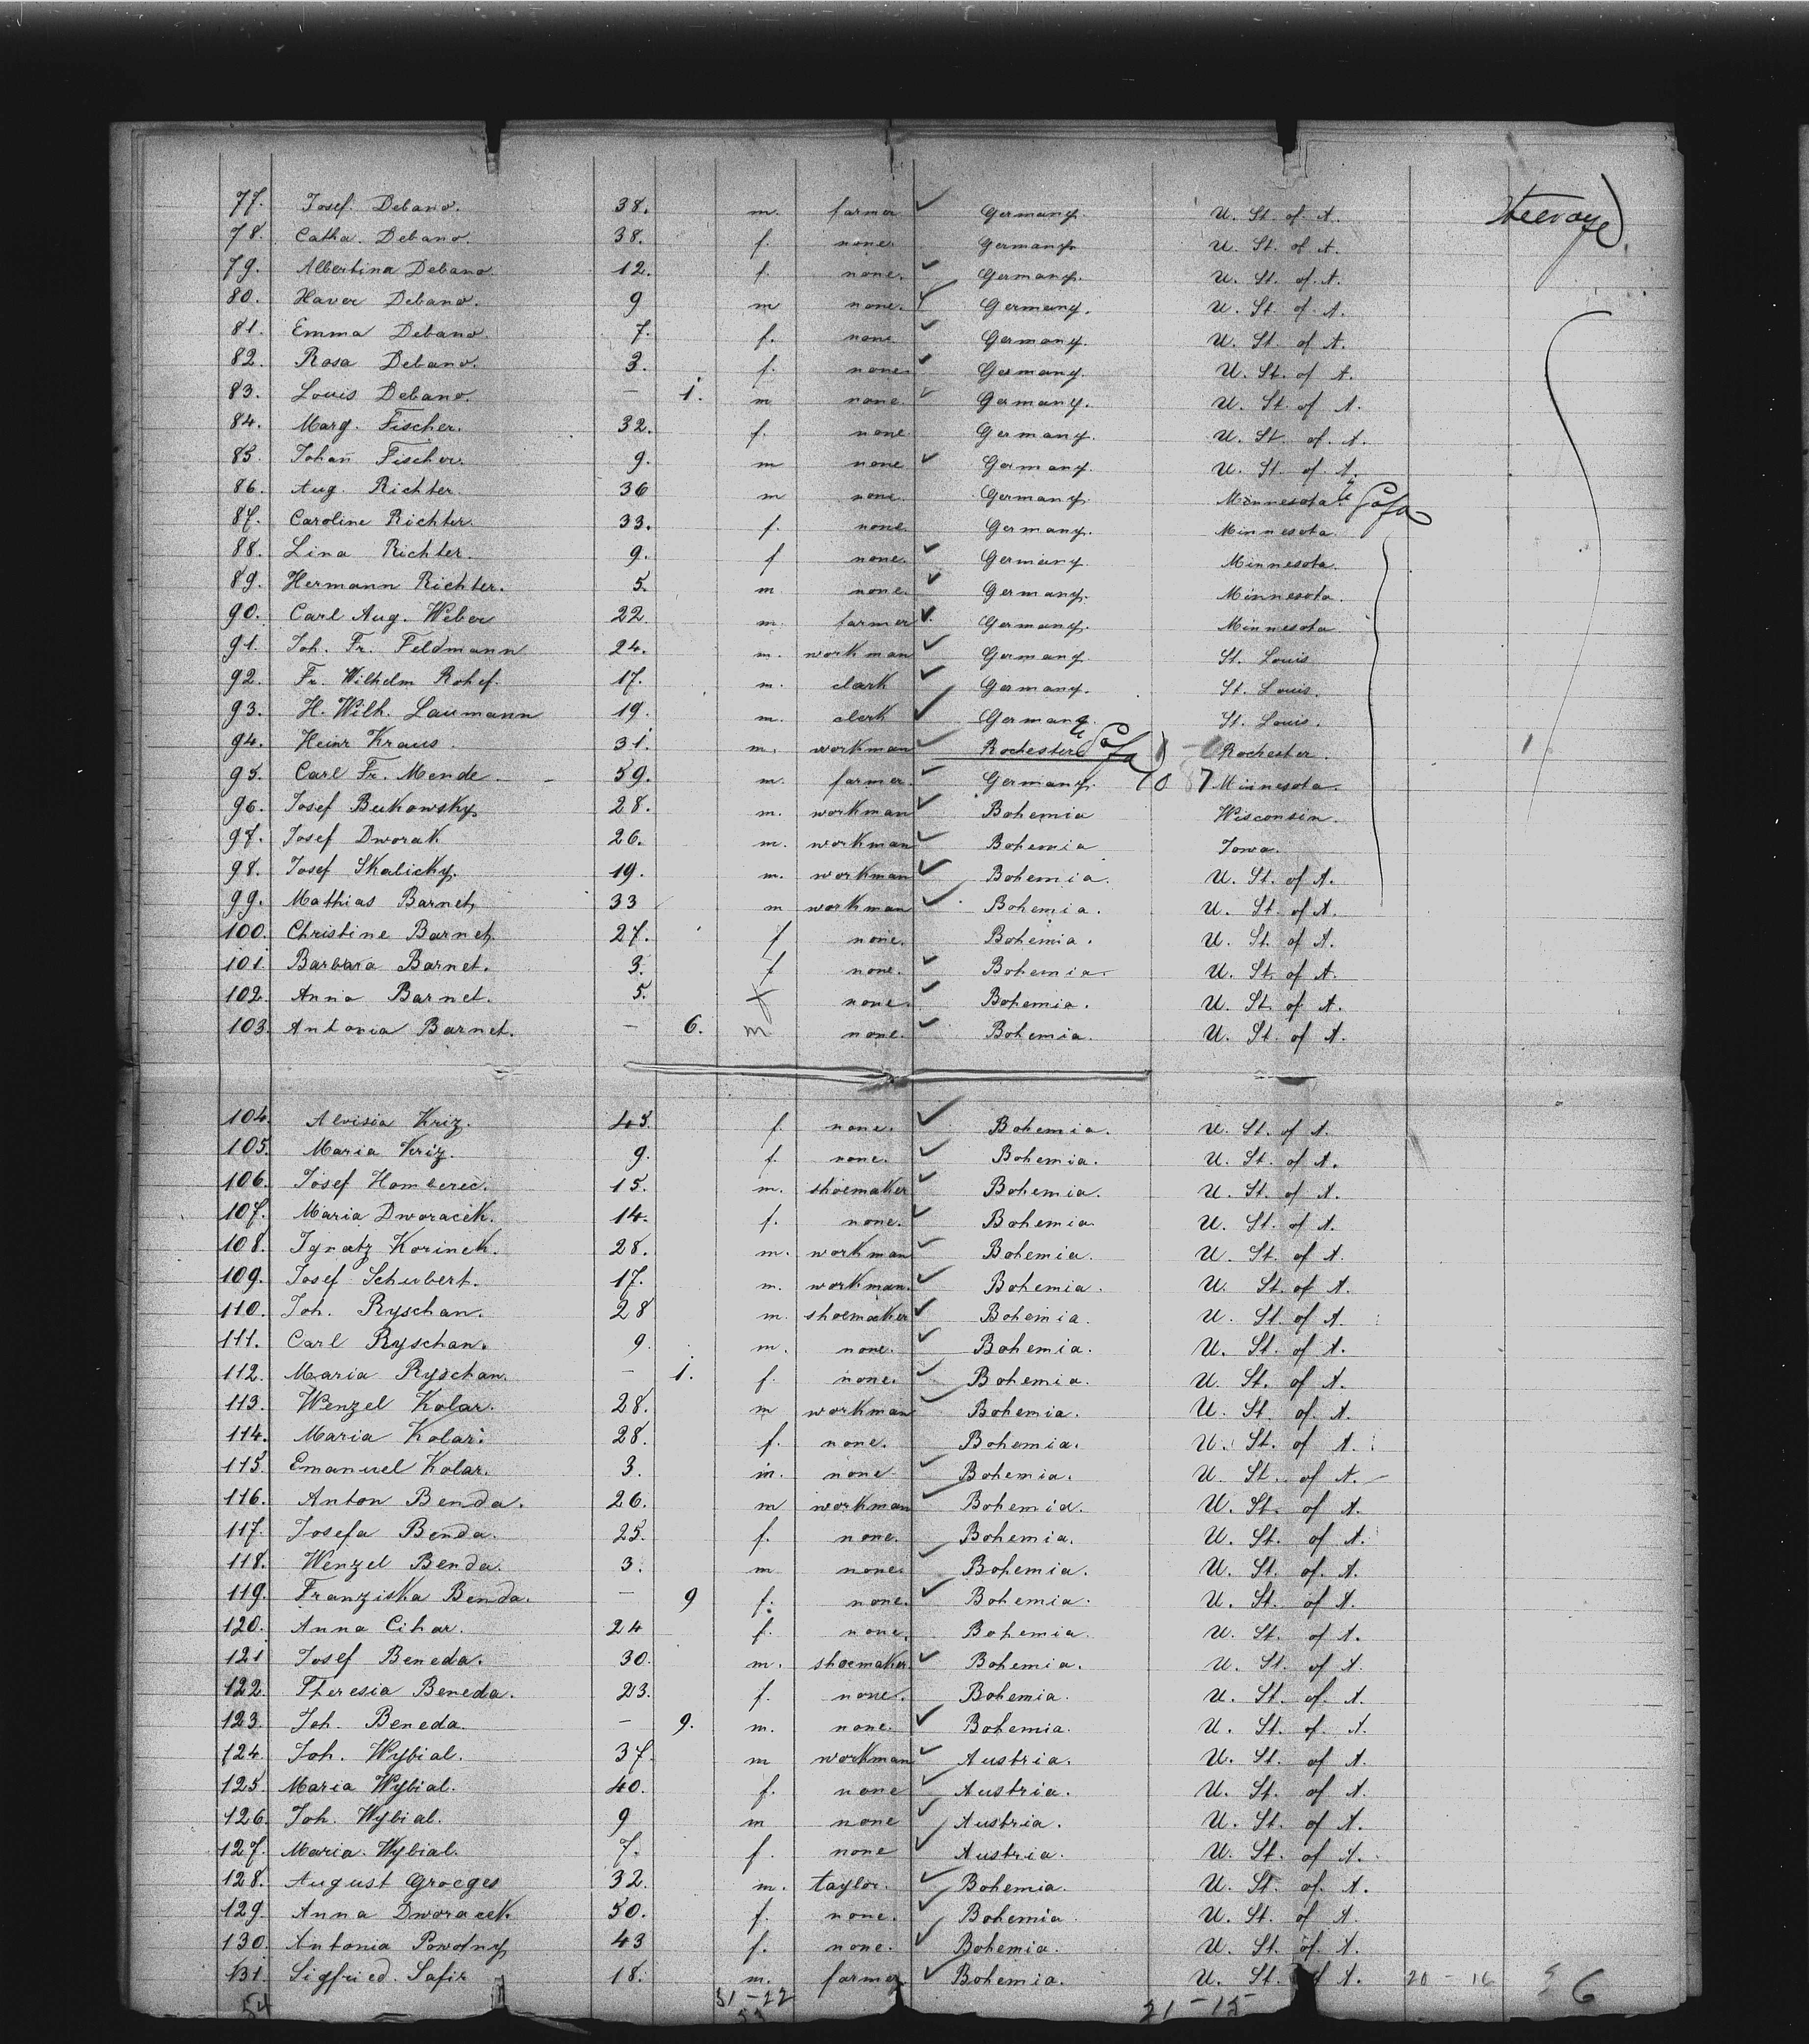 77. Josef Debano. 38. m. farmer Germany. U. St. of A. Steerage
78. Catha. Debano. 38. f. none. Germany. U. St. of A.
79. Albertina Debano 12. f. none. Germany. U. St. of A.
80. Haver Debano. 9 m none. Germany. U. St. of A.
81. Emma Debano. 7. f. none Germany. U. St. of A.
82. Rosa Debano. 3. f. none. Germany. U. St. of A.
83. Louis Debano. — 1. m none. Germany. U. St. of A.
84. Marg. Fischer. 32. f. none Germany. U. St. of A.
85. Johan Fischer. 9. m none Germany. U. St. of A.
86. Aug. Richter. 36 m none. Germany. Minnesota.
87. Caroline Richter. 33. f. none. Germany. Minnesota.
88. Lina Richter. 9. f none. Germany. Minnesota.
89. Hermann Richter. 5. m none. Germany. Minnesota.
90. Carl Aug. Weber 22. m. farmer Germany. Minnesota
91. Joh. Fr. Feldmann 24. m. workman Germany St. Louis
92. Fr. Wilhelm Rohef. 17. m. clark Germany. St. Louis.
93. H. Wilh. Laumann 19. m. clerk Germany. St. Louis.
94. Heinr Kraus. 31. m. workman Rochester Rochester. 1
95. Carl Fr. Mende. 59. m. farmer. Germany. 10 87 Minnesota.
96. Josef Bukowsky 28. m. workman Bohemia Wisconsin.
97. Josef Dworak 26. m. workman Bohemia Iowa.
98. Josef Skalicky. 19. m. workman Bohemia. U. St. of A.
99. Mathias Barnet 33 m workman Bohemia. U. St. of A.
100. Christine Barnet. 27. f none. Bohemia. U. St. of A.
101. Barbara Barnet. 3. f none. Bohemia. U. St. of A.
102. Anna Barnet. 5. f none. Bohemia. U. St. of A.
103. Antonia Barnet. — 6. m none. Bohemia. U. St. of A.
104. Aloisia Kriz. 45. f. none. Bohemia. U. St. of A.
105. Maria Kriz. 9. f. none. Bohemia. U. St. of A.
106. Josef Homberec. 15. m. shoemaker Bohemia. U. St. of A.
107. Maria Dworacek. 14. f. none. Bohemia. U. St. of A.
108. Ignatz Korinek. 28. m. workman Bohemia. U. St. of A.
109. Josef Schubert. 17. m. workman. Bohemia. U. St. of A.
110. Joh. Ryschan. 28 m. shoemaker Bohemia. U. St. of A.
111. Carl Ryschan. 9 m. none. Bohemia. U. St. of A.
112. Maria Ryschan. — 1. f. none. Bohemia. U. St. of A.
113. Wenzel Kolar. 28. m workman Bohemia. U. St. of A.
114. Maria Kolar. 28. f. none. Bohemia. U. St. of A.
115. Emanuel Kolar. 3. m. none. Bohemia. U. St. of A.
116. Anton Benda. 26. m workman Bohemia. U. St. of A.
117. Josefa Benda. 25. f. none. Bohemia. U. St. of A.
118. Wenzel Benda. 3. m none. Bohemia. U. St. of A.
119. Franziska Benda. — 9 f. none. Bohemia. U. St. of A.
120. Anna Cihar. 24 f. none. Bohemia. U. St. of A.
121 Josef Beneda. 30. m. shoemaker. Bohemia. U. St. of A.
122. Theresia Beneda. 23. f. none. Bohemia. U. St. of A.
123. Joh. Beneda. — 9. m. none. Bohemia. U. St. of A.
124. Joh. Wybial. 37. m workman Austria. U. St. of A.
125. Maria Wybial. 40. f. none Austria. U. St. of A.
126. Joh. Wybial. 9 m none Austria. U. St. of A.
127. Maria Wybial. 7. f. none Austria. U. St. of A.
128. August Groeges 32. m. taylor. Bohemia. U. St. of A.
129. Anna Dworacek. 50. f. none. Bohemia. U. St. of A.
130. Antonia Powotny 43 f. none. Bohemia. U. St. of A.
131. Sigfried Safir 18. m. farmer Bohemia. U. St. of A. 20 - 16 6
54 31 - 22 21 - 15